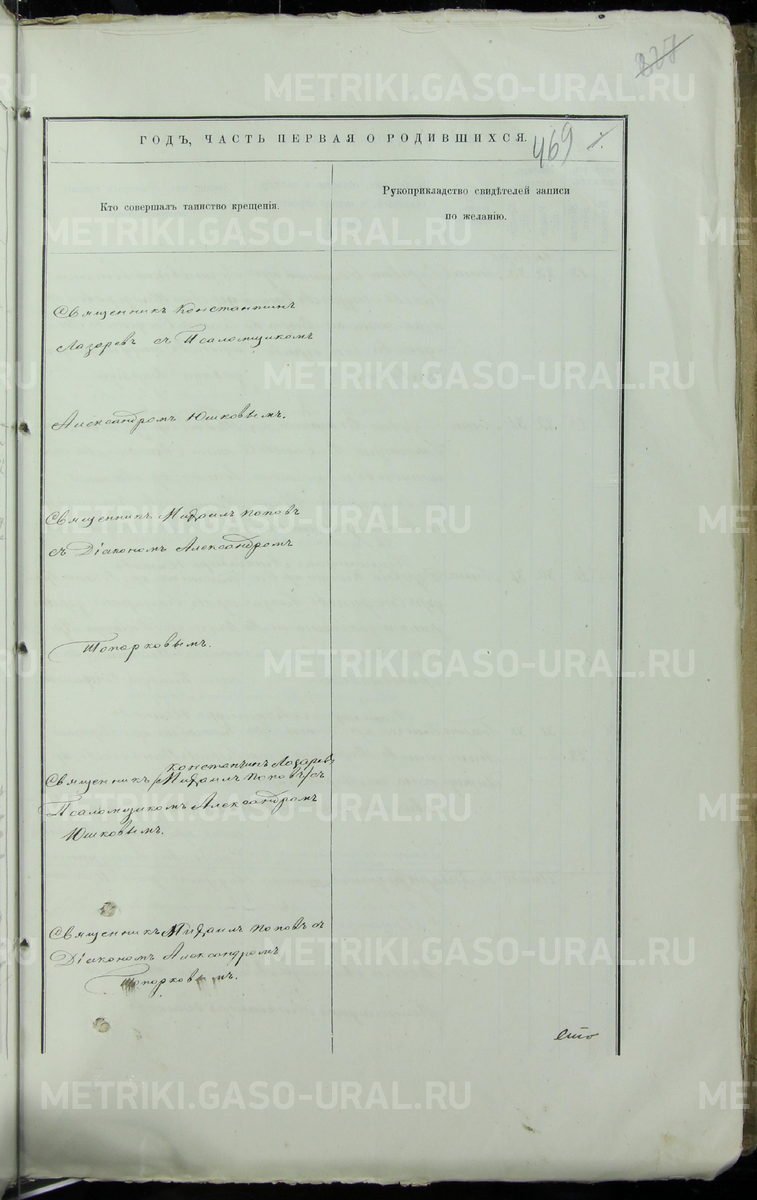 227
ГОДЪ, ЧАСТЬ ПЕРВАЯ О РОДИВШИХСЯ.
469
Кто совершалъ таинство крещенія.
Рукоприкладство свидѣтелей записи
по желанію.
Священникъ Константинъ
Лазаревъ съ Псаломщикомъ
Александромъ Юшковымъ.
Священникъ Михаилъ Поповъ
съ Діакономъ Александромъ
Топорковымъ.
Константинъ Лазаревъ
Священникъ /Михаилъ Поповъ/ съ
Псаломщикомъ Александромъ
Юшковымъ.
Священникъ Михаилъ Поповъ съ
Діакономъ Александромъ
Топорковымъ.
METRIKI.GASO-URAL.RU